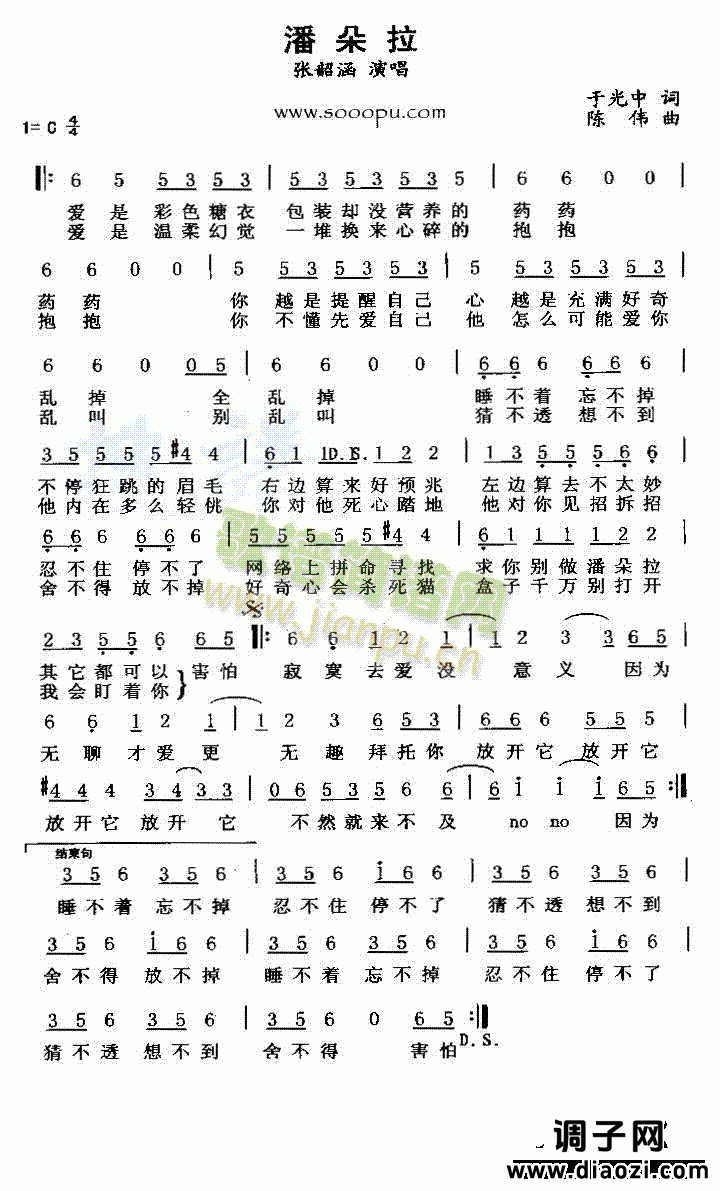 潘朵拉
张韶涵 演唱
于光中 词
www.sooopu.com
陈 伟 曲
1= C 4/4
6 5 53 53 | 53 53 53 5 | 6 6 0 0 |
爱是彩色糖衣 包装却没营养的 药药
爱是温柔幻觉 一堆换来心碎的 抱抱
6 6 0 0 | 5 53 53 53 | 5 53 53 53 |
药药 你 越是提醒自己 心 越是充满好奇
抱抱 你 不懂先爱自己 他 怎么可能爱你
6 6 0 05 | 6 6 0 0 | 666 666 |
乱掉 全 乱掉 睡不着 忘不掉
乱叫 别 乱叫 猜不透 想不到
35 55 5#4 4 | 61 1 1 122 | 13 55 56 6 |
D.S.
不停狂跳的眉毛 右边算来好预兆 左边算去不太妙
他内在多么轻佻 你对他死心踏地 他对你见招拆招
666 666 | 55 55 5#4 4 | 61 11 12 2 |
忍不住 停不了 网络上拼命寻找 求你别做潘朵拉
舍不得 放不掉 好奇心会杀死猫 盒子千万别打开
歌谱简谱网
www.jianpu.cn
23 55 6 65 | 6 6 12 1 | 12 3 3 65 |
其它都可以 害怕 寂寞去爱没 意义 因为
我会盯着你
6 6 12 1 | 12 3 653 | 666 555 |
无聊才爱更 无趣拜托你 放开它 放开它
#444 3433 | 06 53 56 6 | 6i i 65 |
放开它 放开 它 不然就来不及 no no 因为
结束句
356 356 | 356 i66 | 356 356 |
睡不着 忘不掉 忍不住 停不了 猜不透 想不到
356 i66 | 356 356 | 356 i66 |
舍不得 放不掉 睡不着 忘不掉 忍不住 停不了
356 356 | 356 0 65 |
猜不透 想不到 舍不得 害怕 D.S.
调子网
www.diaozi.com